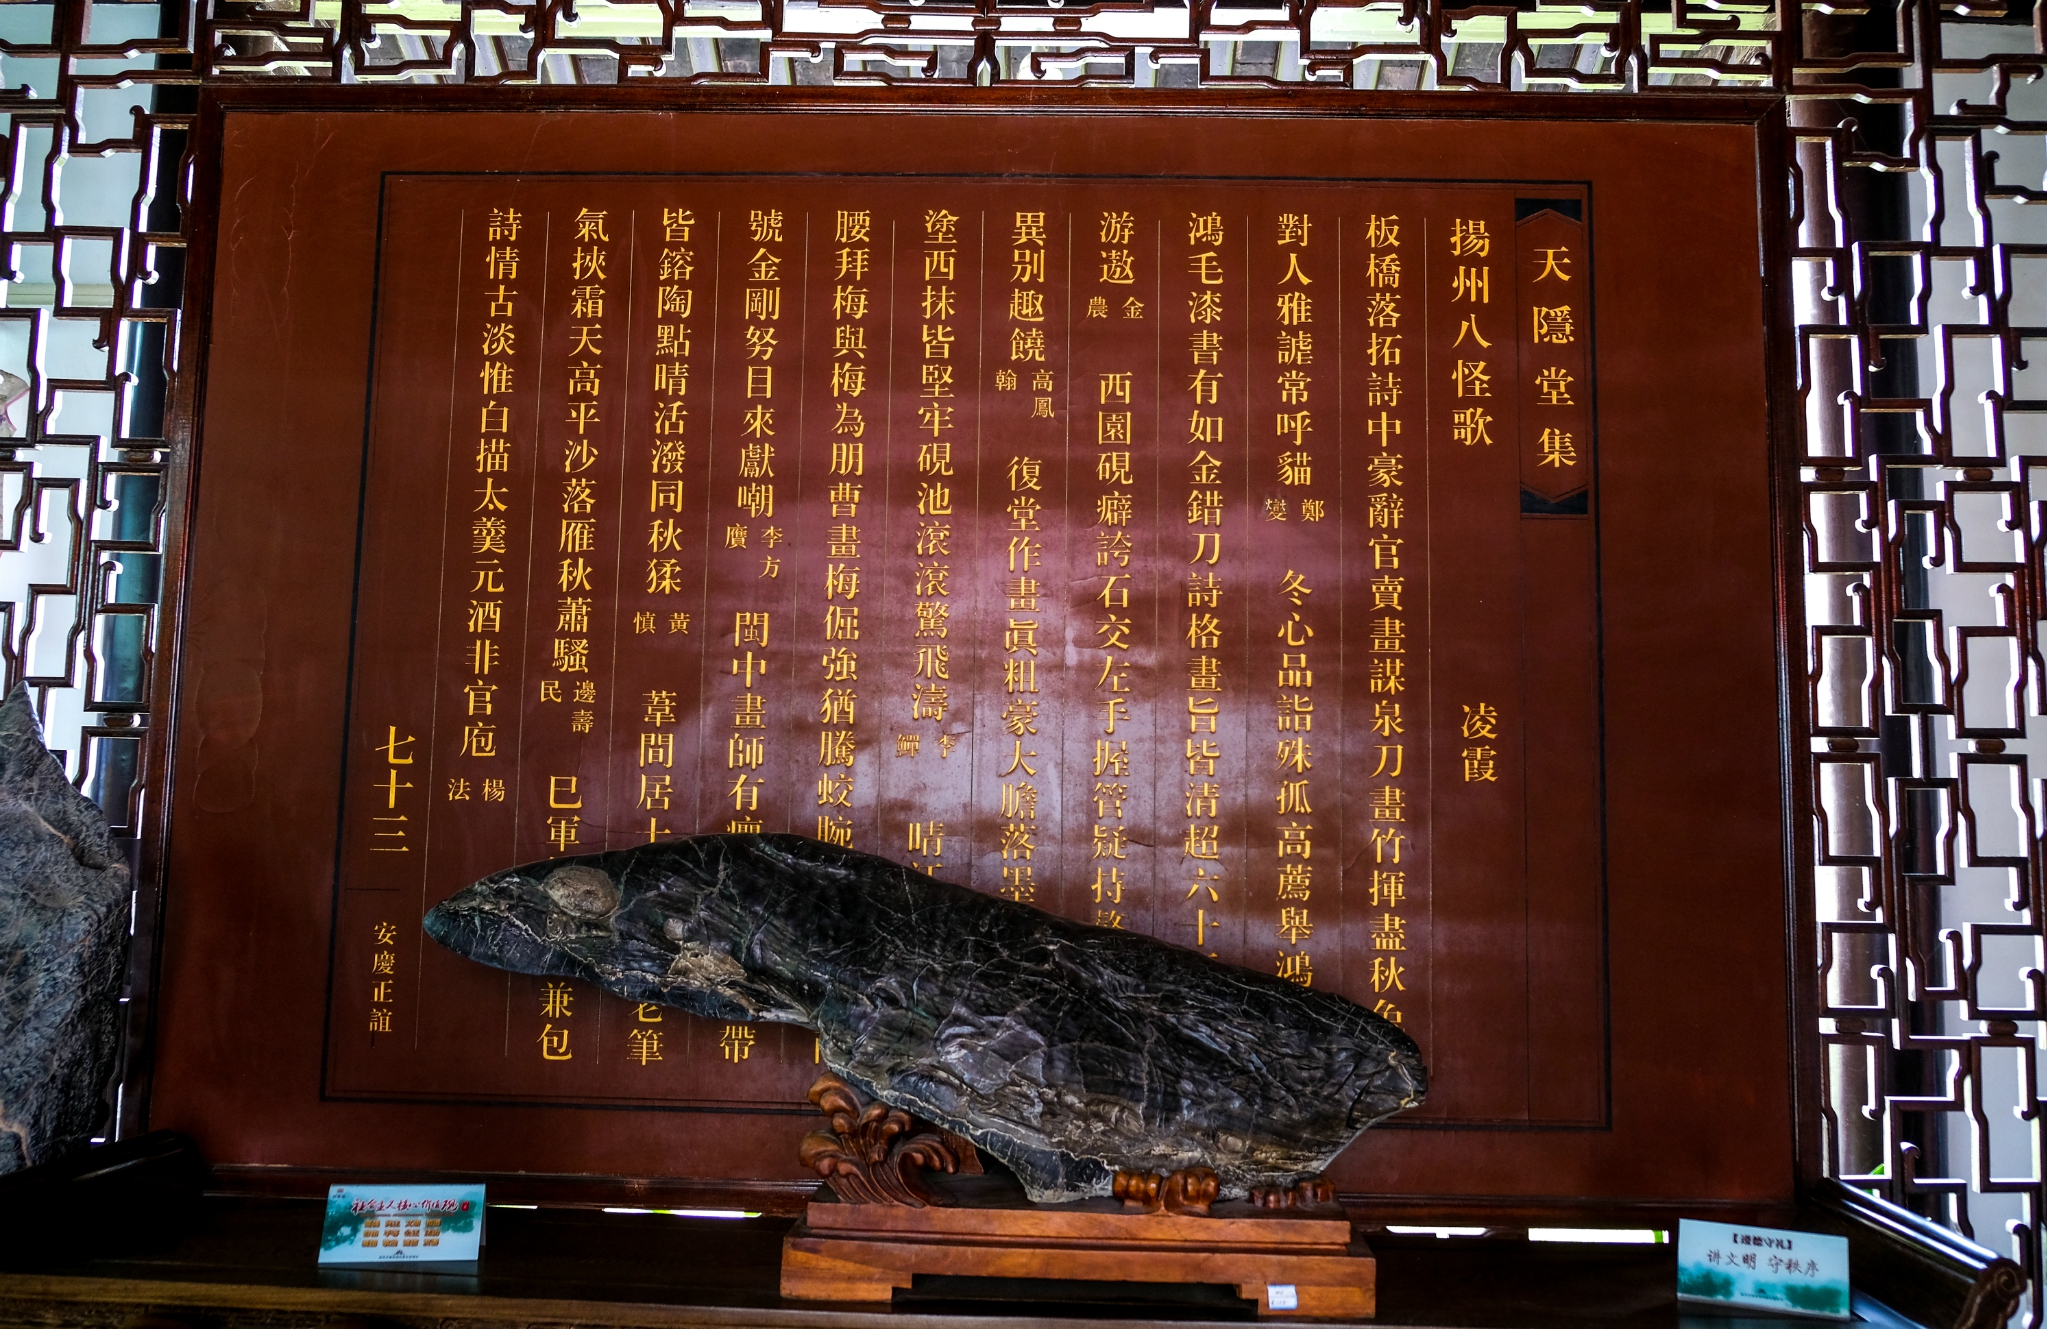 天隱堂集
揚州八怪歌 凌霞
板橋落拓詩中豪辭官賣畫謀泉刀畫竹揮盡秋色
對人雅謔常呼貓 鄭燮 冬心品詣殊孤高薦舉鴻
鴻毛漆書有如金錯刀詩格畫旨皆清超六十
游遨 金農 西園硯癖誇石交左手握管疑持
異別趣饒 高鳳翰 復堂作畫眞粗豪大膽落墨
塗西抹皆堅牢硯池滾滾驚飛濤 李鱓 晴
腰拜梅與梅為朋曹畫梅倔強猶騰蛟腕
號金剛努目來獻嘲 李方膺 閩中畫師有 帶
皆鎔陶點晴活潑同秋猱 黃慎 葦間居士 老筆
氣挾霜天高平沙落雁秋蕭騷 邊壽民 巳軍 兼包
詩情古淡惟白描太羹元酒非官庖 楊法
七十三
安慶正誼
社会主义核心价值观
【遵德守礼】
讲文明 守秩序